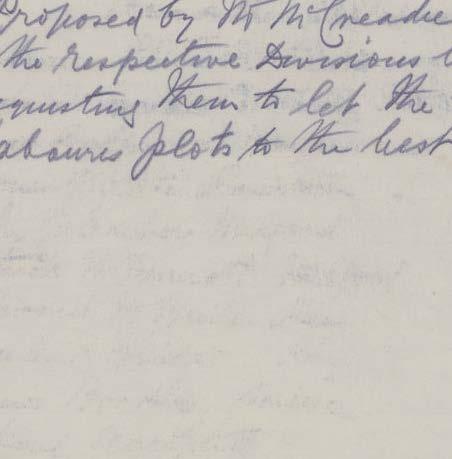 Proposed by Mr McCreadie
the respective Divisions
equesting them to let the
abourers plots to the best